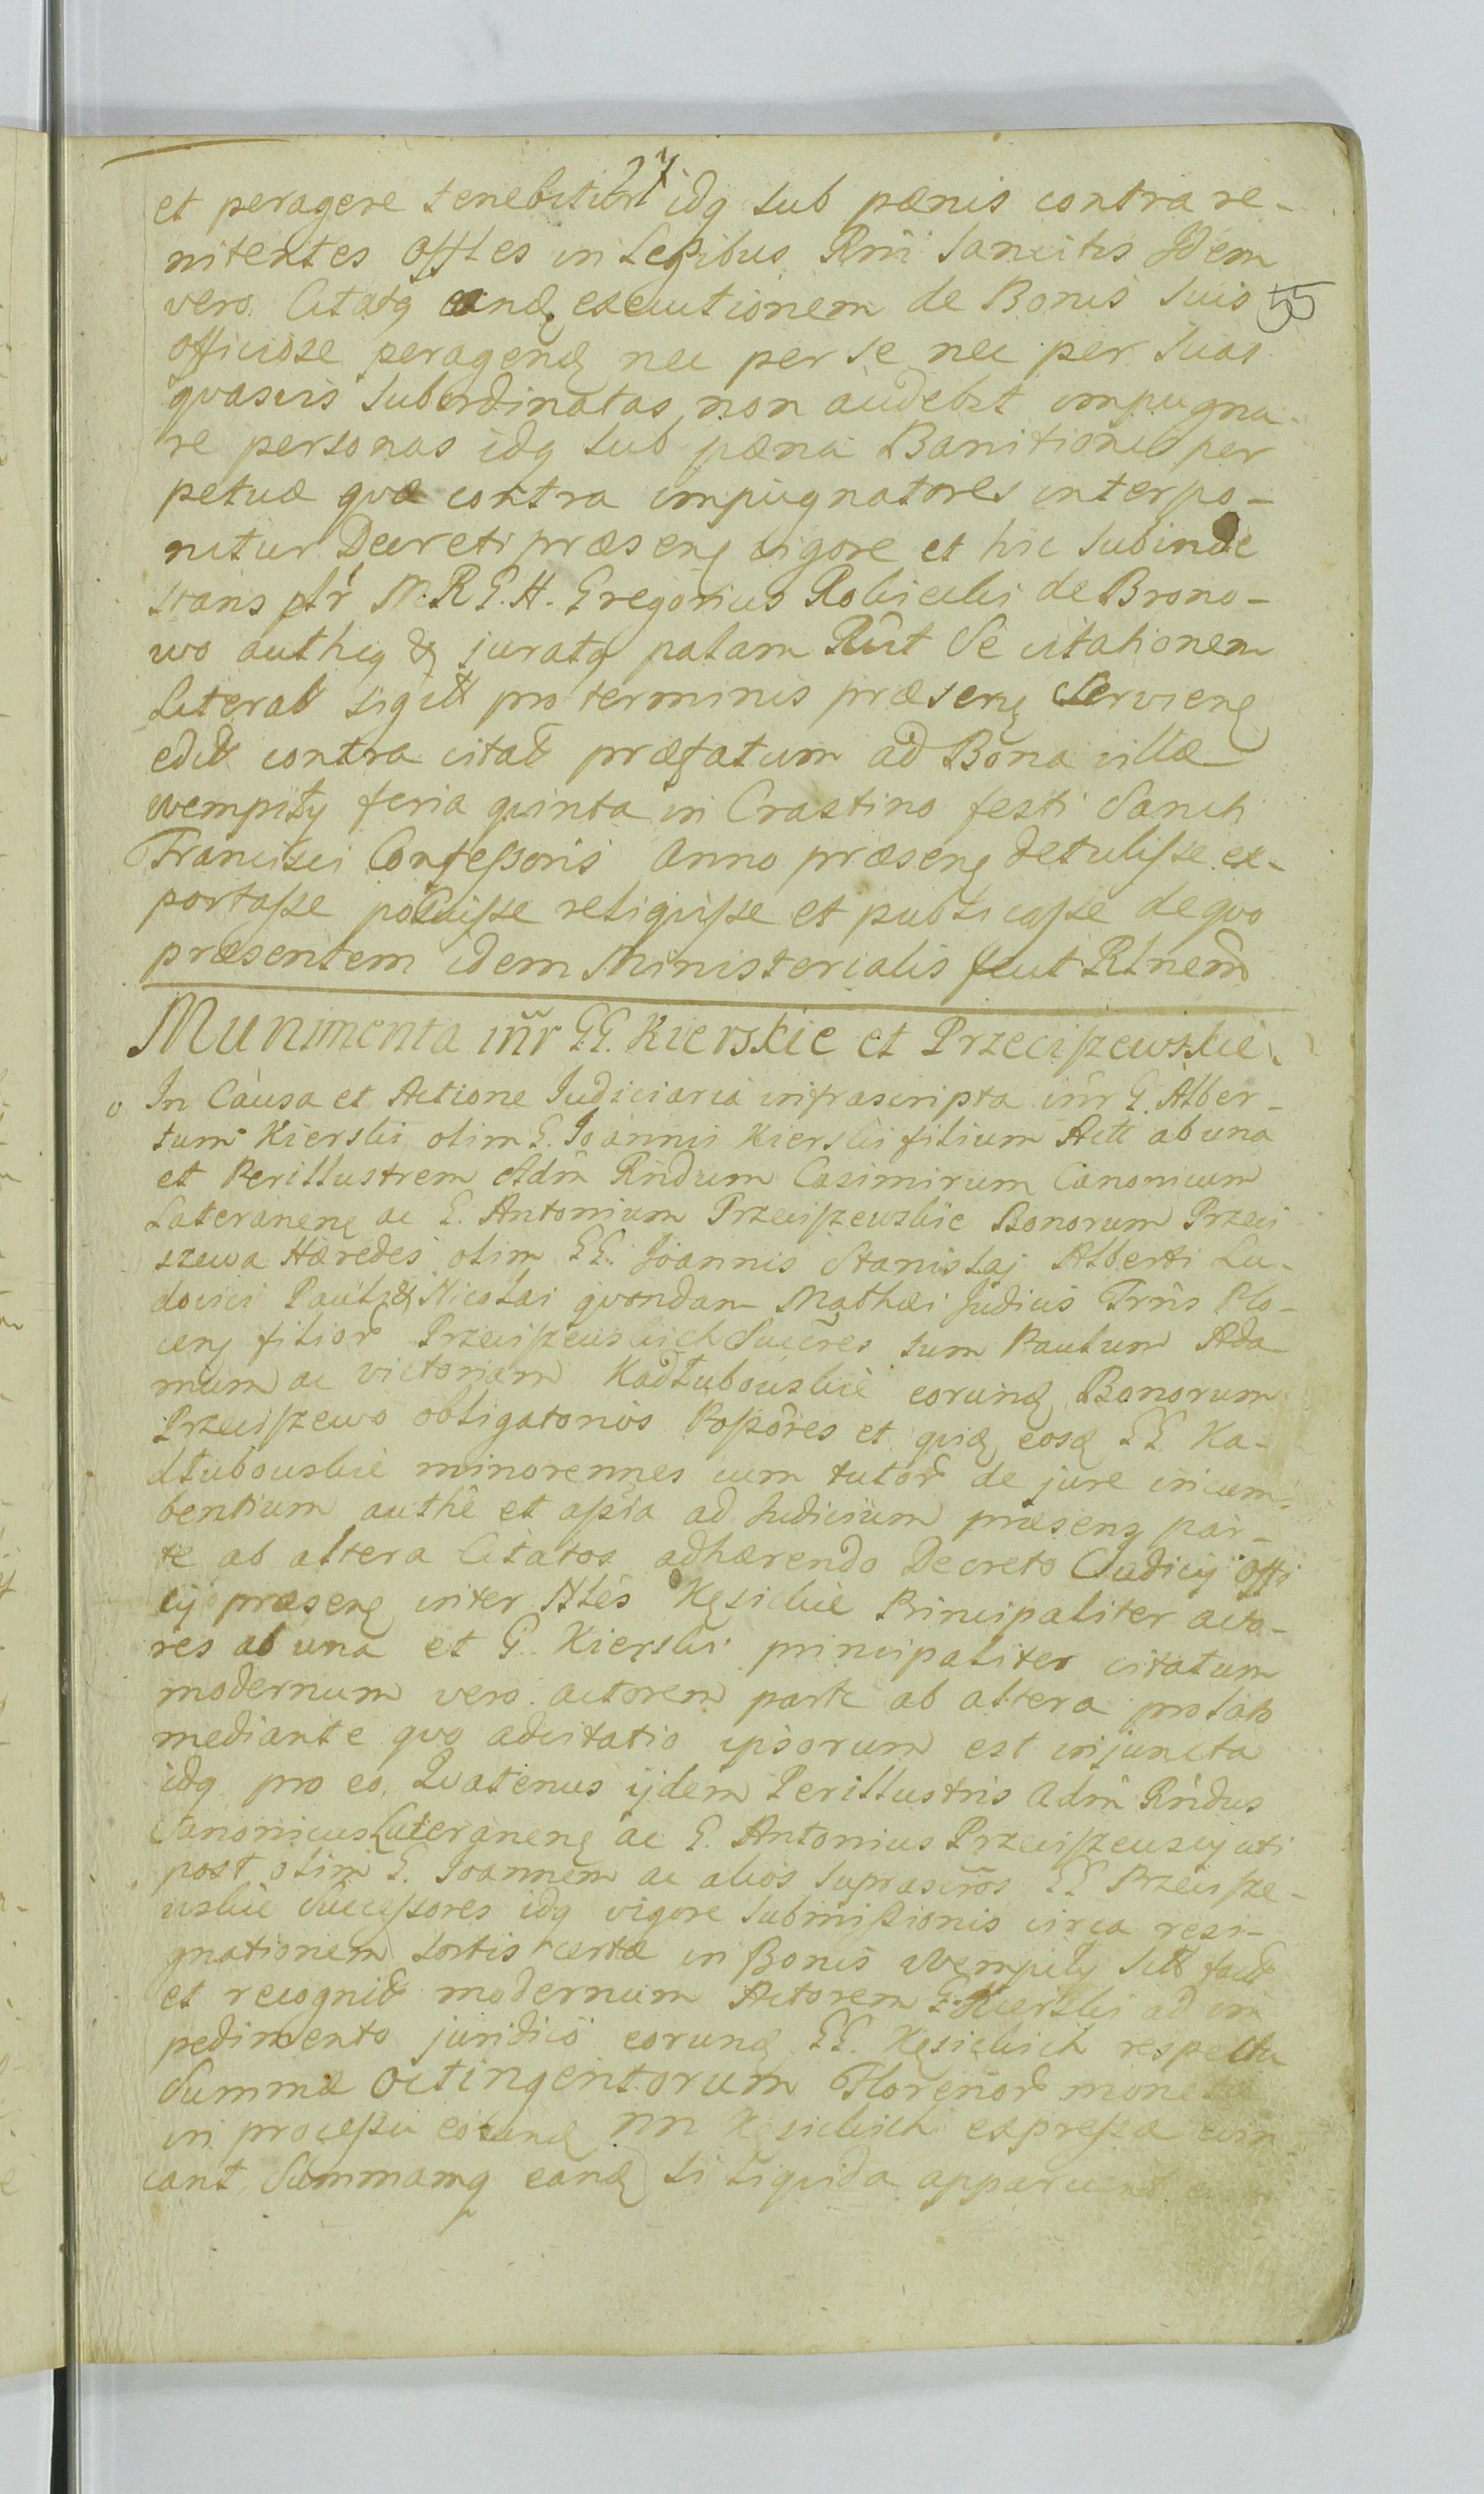 27
et peragere tenebitur idq sub pœnis contra re-
nitentes Offles in Legibus Rni Sancitis Idem
vero Citatq eand executionem de Bonis suis
55
officiose peragend nec per se nec per suas
qvasvis subordinatas non audebit impugna-
re personas idq sub pœna Banitionis per
petuæ qvæ contra impugnatores interpo-
nitur Decreti præsenq vigore et hic subinde
stans pltr M. R. G. H. Gregorius Robicki de Brono-
wo autheq & juratq palam Rlut se citationem
Literal sigill pro terminis præsenq servienq
edit contra citat præfatum ad Bona villæ
Wempiły feria qvinta in Crastino festi Sancti
Francisci Confeſsoris Anno præsenq detuliſse ex-
portaſse poſuiſse reliqviſse et publicaſse de qvo
præsentem idem Ministerialis fecit Rlnem
Munimenta inr GG. Kierskie et Przeciſzewskie
In Causa et Actione Judiciaria infrascripta inr G. Alber-
tum Kierski olim G. Joannis Kierski filium Actt ab una
et Perillustrem Adm Rndum Casimirum Canonicum
Lateranenq ac G. Antonium Przeciſzewskie Bonorum Przeci
szewa Hæredes olim GG. Joannis Stanislaj Alberti Lu-
dovici Pauli & Nicolai qvondam Mathæi Judicis Trris Plo-
cenq filior Przeciſzewskich Succres tum Paulum Ada
mum ac Victoriam Kadłubowskie eorund Bonorum
Przeciſzewo obligatorios Poſsores et qvid eosd GG. Ka-
dłubowskie minorennes cum tutor de jure incum-
bentium authe et aſsia ad Judicium præsenq par-
te ab altera Citatos adhærendo Decreto Judicij Offi
cij præsenq inter Nles Kęsickie Principaliter acto-
res ab una et G. Kierski principaliter citatum
modernum vero actorem parte ab altera prolato
mediante qvo adcitatio ipsorum est injuncta
idq pro eo, Qvatenus ijdem Perillustris Adm Rndus
Canonicus Lateranenq ac G. Antonius Przeciſzewscy uti
post olim G. Joannem ac alios suprascros GG Przeciſze-
wskie Succeſsores idq vigore submiſsionis circa resi-
gnationem sortis certæ in Bonis Wempiły
et recognit modernum Actorem G. Kierski ad im
pedimento juridico eorund GG. Kęsickich respectu
Summæ octingentorum Florenor monetæ
in proceſsu eorund NN Kęsickich expreſsæ evin
cant, Summamq eand si liqvida apparuerit